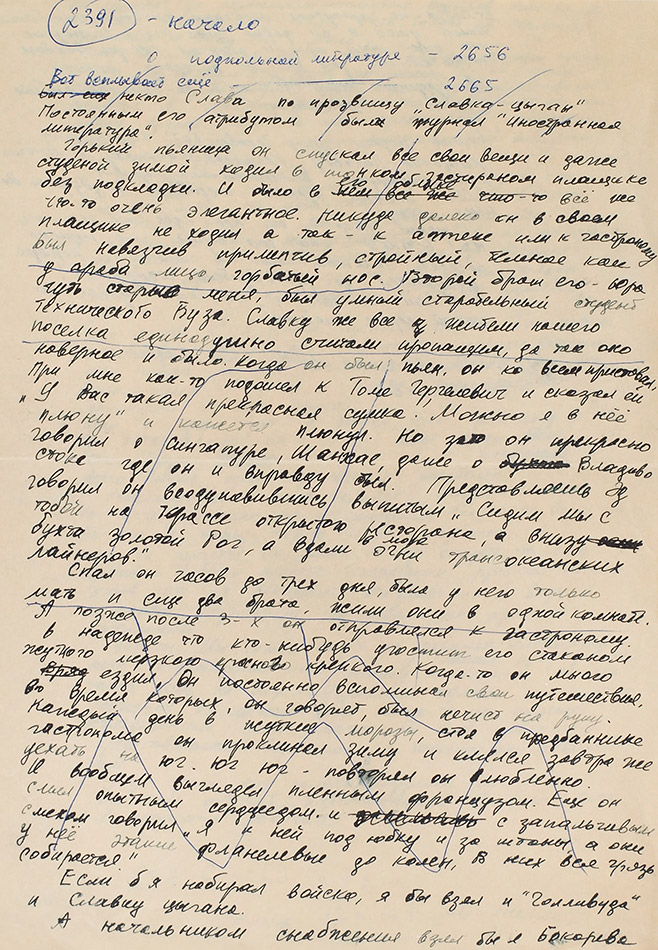 2391 - начало
О подпольной литературе - 2656
Вот всплывает ещё 2665
некто Слава по прозвищу "Славка-цыган"
Постоянным его атрибутом был журнал "Иностранная
литература".
Горький пьяница он спускал все свои вещи и даже
студеной зимой ходил в тонком застираном плащике
без подкладки. И было в его облике что-то всё же
что-то очень элегантное. Никуда далеко он в своем
плащике не ходил а так - к аптеке или к гастроному
Был навязчив прилипчив, стройный, темное как
у араба лицо, горбатый нос. Второй брат его - Юра
чуть старше меня, был умный старательный студент
технического Вуза. Славку же все жители нашего
поселка единодушно считали пропащим, да так оно
наверное и было. Когда он был пьян, он ко всем приставал,
При мне как-то подошел к Томе Гергелевич и сказал ей
"У Вас такая прекрасная сумка! Можно я в неё
плюну" и кажется плюнул. Но зато он прекрасно
говорил о Сингапуре, даже о Владиво
стоке где он и вправду был. Представляешь
говорил он воодушевившись выпитым "Сидим мы с
тобой на террасе открытого ресторана, а внизу
бухта Золотой Рог, а вдали в море огни трансокеанских
лайнеров."
Спал он часов до трех дня, была у него только
мать и еще два брата, жили они в одной комнате.
А позже после 3-х он отправлялся к гастроному.
в надежде что кто-нибудь угостит его стаканом
жуткого мерзкого красного крепкого. Когда-то он много
ездил. Он постоянно вспоминал свои путешествия,
во время которых, он говорят, был нечист на руку.
Каждый день в жуткие морозы, стоя в предбаннике
гастронома он проклинал зиму и клялся завтра же
уехать на юг. Юг юг - повторял он влюбленно.
И вообщем выглядел пленным французом. Еще он
слыл опытным сердцеедом. и с запальчивым
смехом говорил "Я к ней под юбку и за штаны а они
у неё этакие фланелевые до колен, в них вся грязь
собирается"
Если б я набирал войско, я бы взял и "Голливуда"
и Славку цыгана.
А начальником снабжения взял бы я Бокарева